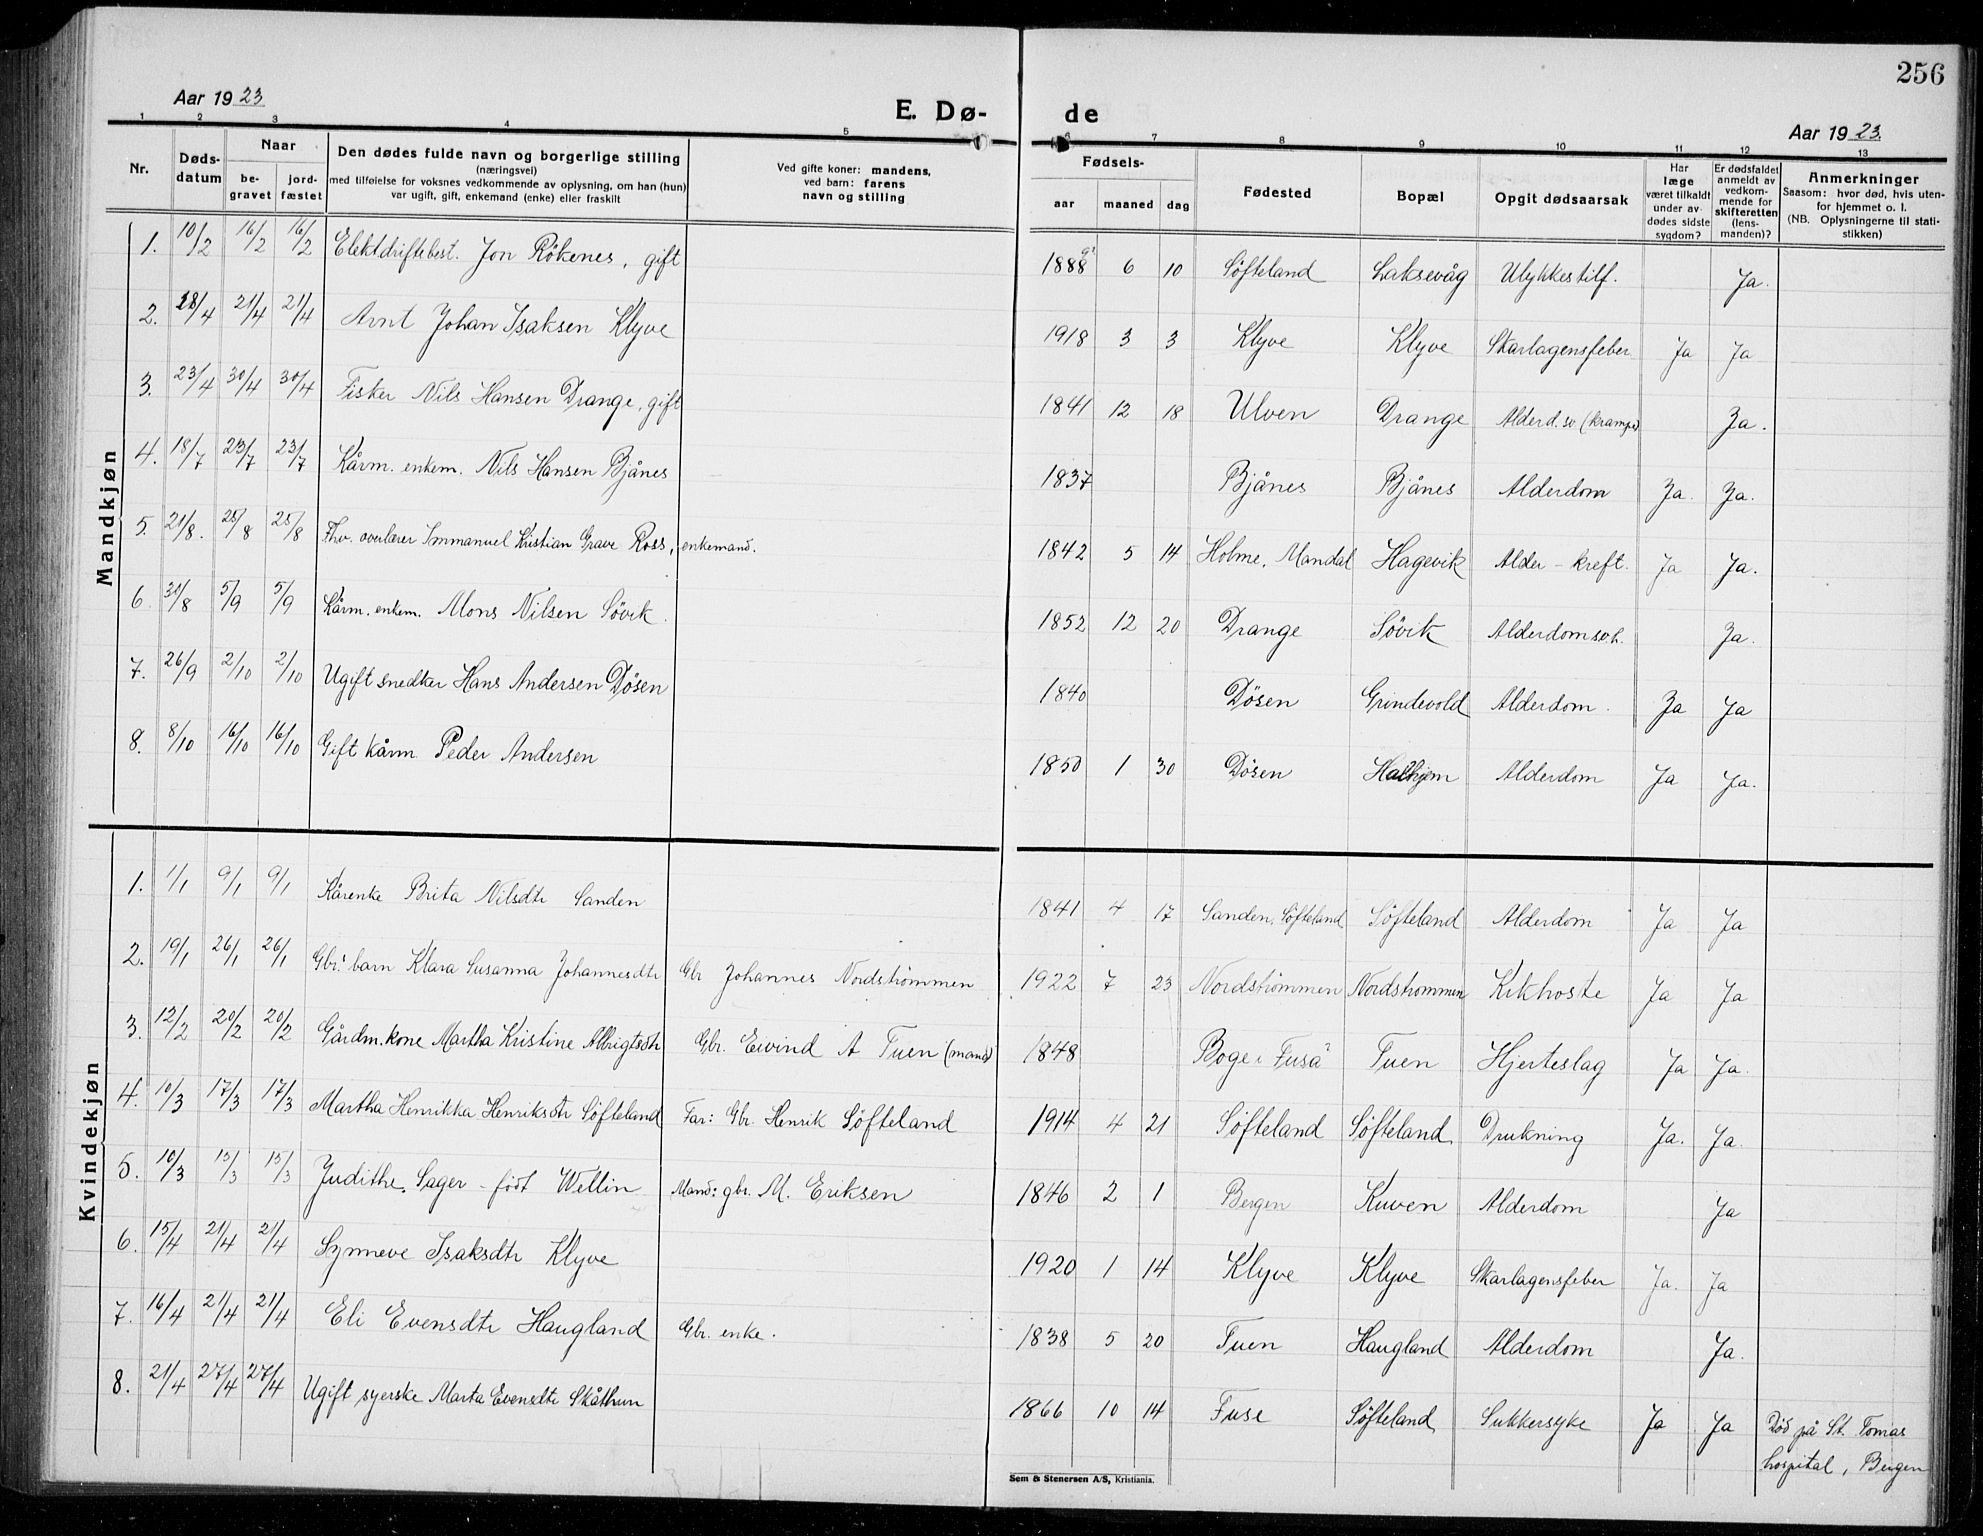 256
Aar 1923
E. Dø-
de
Aar 1923.
1 2 3 4 5 6 7 8 9 10 11 12 13
Nr.
Døds-
datum
Naar
be-
gravet
jord-
fæstet
Den dødes fulde navn og borgerlige stilling
(næringsvei)
med tilføielse for voksnes vedkommende av oplysning, om han (hun)
var ugift, gift, enkemand (enke) eller fraskilt
Ved gifte koner: mandens,
ved barn: farens
navn og stilling
Fødsels-
aar maaned dag
Fødested
Bopæl
Opgit dødsaarsak
Har
læge
været tilkaldt
under av-
dødes sidste
sygdom?
Er dødsfaldet
anmeldt av
vedkom-
mende for
skifteretten
(lens-
manden)?
Anmerkninger
Saasom: hvor død, hvis uten-
for hjemmet o. l.
(NB. Oplysningerne til stati-
stikken)
Mandkjøn
1. 10/2 16/2 16/2 Elektdriftsbest. Jon Rökenes, gift 1888 6 10 Söfteland Laksevåg Ulykkestilf. Ja.
2. 18/4 21/4 21/4 Arnt Johan Isaksen Klyve 1918 3 3 Klyve Klyve Skarlagensfeber Ja Ja
3. 23/4 30/4 30/4 Fisker Nils Hansen Drange, gift 1841 12 18 Ulven Drange Alderd. sv (krampe) Ja.
4. 18/7 23/7 23/7 Kårm. enkem. Nils Hansen Bjånes 1837 Bjånes Bjånes Alderdom Ja. Ja.
5. 21/8. 25/8 25/8 Fhv. overlærer Immanuel Kristian Grave Ross, enkemand. 1842 5 14 Holme, Mandal Hagevik Alder - kreft. Ja Ja.
6. 30/8 5/9 5/9 Kårm. enkem. Mons Nilsen Sövik. 1852 12 20 Drange Sövik Alderdomsvh. Ja.
7. 26/9 2/10 2/10 Ugift snedker Hans Andersen Dösen 1840 Dösen Grindevold Alderdom. Ja Ja
8. 8/10 16/10 16/10 Gift kårm Peder Andersen 1850 1 30 Dösen Halhjem Alderdom Ja Ja.
Kvindekjøn
1. 1/1 9/1 9/1 Kårenke Brita Nilsdtr Sanden 1841 4 17 Sanden, Söfteland Söfteland Alderdom Ja Ja
2. 19/1 26/1 26/1 Gbr.' barn Klara Susanna Johannesdtr Gbr Johannes Nordströmmen 1922 7 23 Nordströmmen Nordströmmen Kikhoste Ja Ja
3. 12/2 20/2 20/2 Gårdm. kone Martha Kristine Albrigtsdtr Gbr. Eivind A Tuen (mand) 1848 Boge i Fusa Tuen Hjerteslag Ja Ja.
4. 10/3 17/3 17/3 Martha Henrikka Henriksdtr Söfteland Far: Gbr. Henrik Söfteland 1914 4 21 Söfteland Söfteland Drukning Ja. Ja.
5. 10/3 15/3 15/3 Judithe Sager - födt Wellin Mand: gbr. M. Eriksen 1846 2 1 Bergen Kuven Alderdom Ja
6. 15/4 21/4 21/4 Synneve Isaksdtr Klyve 1920 1 14 Klyve Klyve Skarlagensfeber Ja. Ja
7. 16/4 21/4 21/4 Eli Evensdtr Haugland Gbr. enke. 1838 5 20 Tuen Haugland Alderdom Ja.
8. 21/4 27/4 27/4 Ugift syerske Marta Evensdtr Skåthun 1866 10 14 Fuse Söfteland Sukkersyke Ja Ja Död på St. Tomas
hospital, Bergen
Sem & Stenersen A/S, Kristiania.